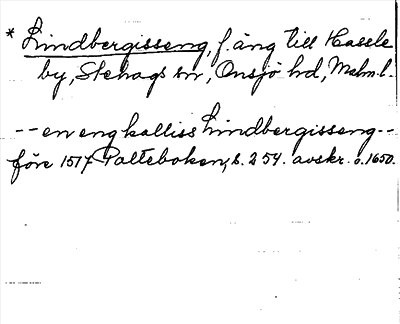 * Lindbergisseng, f. äng till Hassle
by, Stehags sn, Onsjö hd, Malm. l.
-- en eng kalliss Lindbergisseng --
före 1517 Palteboken, s. 254. avskr. o. 1650.